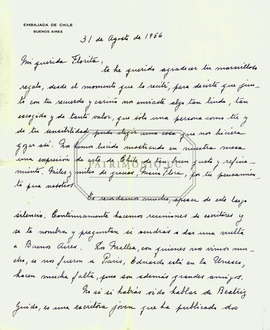 EMBAJADA DE CHILE
BUENOS AIRES
31 de Agosto de 1956
Mi querida Florita,
te he querido agradecer tu maravilloso
regalo, desde el momento que lo recibí, para decirte que jun-
to con tu recuerdo y cariño nos enviaste algo tan lindo, tan
escogido y de tanto valor, que sólo una persona como tú y
de tu sensibilidad puede elegir una cosa que nos hiciera
gozar así. Nos hemos lucido mostrando en nuestra mesa
una expresión de arte de Chile de tan buen gusto y refina-
miento. Miles y miles de gracias, María Flora, por tu pensamien-
to para nosotros.
Te recordamos mucho, apesar de este largo
silencio. Continuamente hacemos reuniones de escritores y
se te nombra y preguntan si vendrás a dar una vuelta
a Buenos Aires. Los Mallea, con quienes nos vimos mu-
cho, se nos fueron a París, Eduardo está en la Unesco,
hacen mucha falta, que son además grandes amigos.
No sé si habrás oído hablar de Beatriz
Guido, es una escritora joven que ha publicado dos